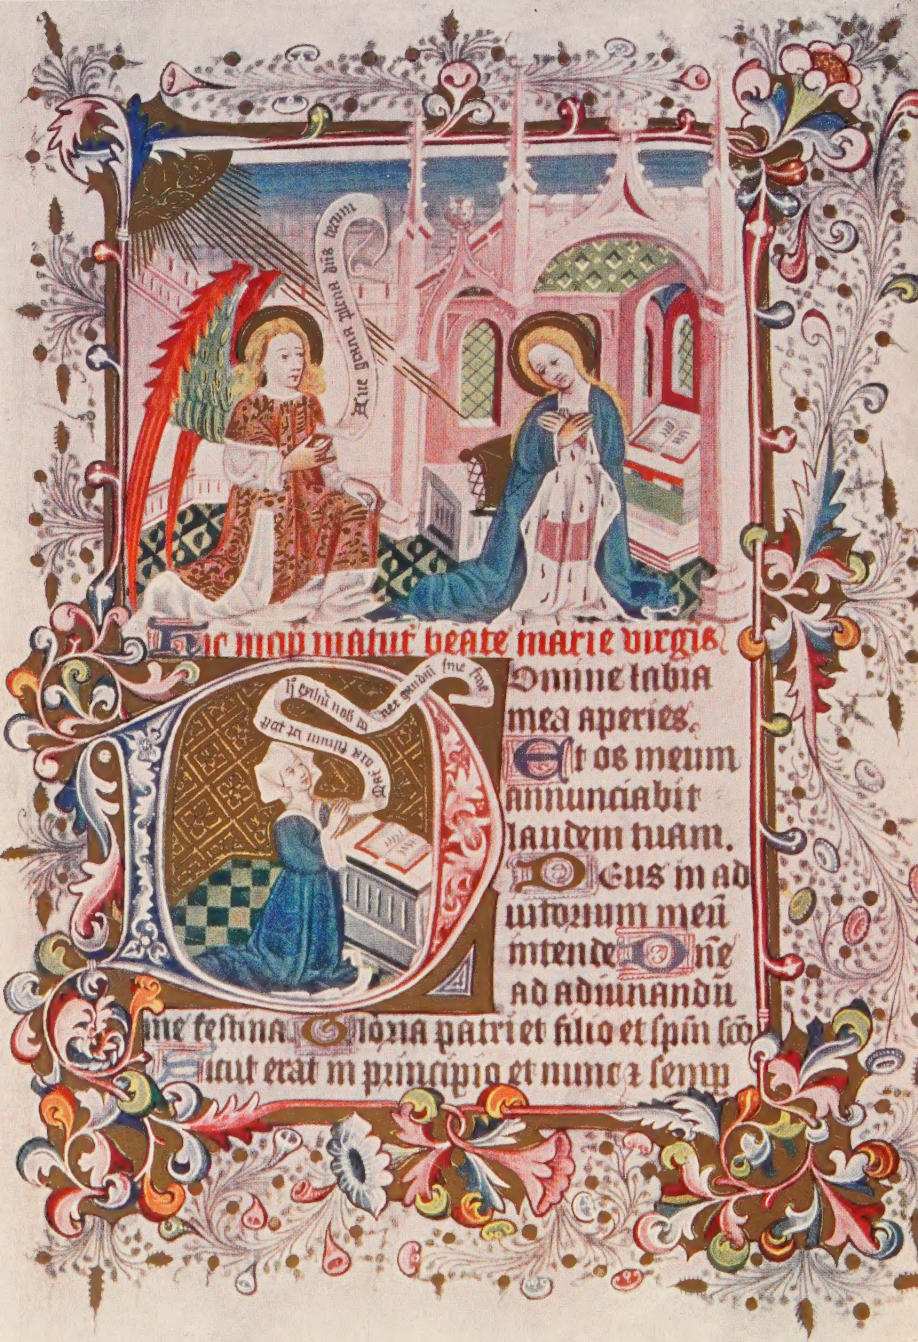 Aue gracia plena dns tecum
Hic incipiut matut beate marie virgis
Omine labia
mea aperies.
Et os meum
annunciabit
laudem tuam.
Deus in ad
iutorium meu
intende Dne
ad adiuuandu
me festina Gloria patri et filio et spm sco
Sicut erat in principio et nunc z semp